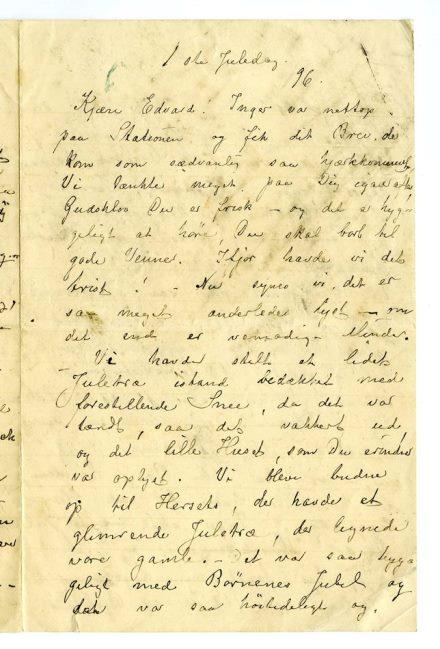 1ste Juledag.
96.
Kjære Edvard! Inger var nettop
paa Stationen og fik dit Brev, de
kom som sædvanlig saa hjærtkommen
Vi tænkte meget paa Dig igaar
Gudskelov Du er frisk – og det er hygge
geligt at høre, Du skal bort til
gode Venner. Ifjor havde vi det
trist! – Nu synes vi, det er
saa meget anderledes lyst – om
det end er vemodige Minder.
Vi havde stelt et lidet
Juletræ istand bedækket med
forestillende Snee, da det var
tændt, saa det vakkert ud
og det lille Huset, som Du erindrer
var oplyst. Vi bleve budne
op til Hersets, der havde et
glimrende Juletræ, der lignede
vore gamle. – Det var saa hyg
geligt med Børnenes Jubel og
var saa høitideligt og.